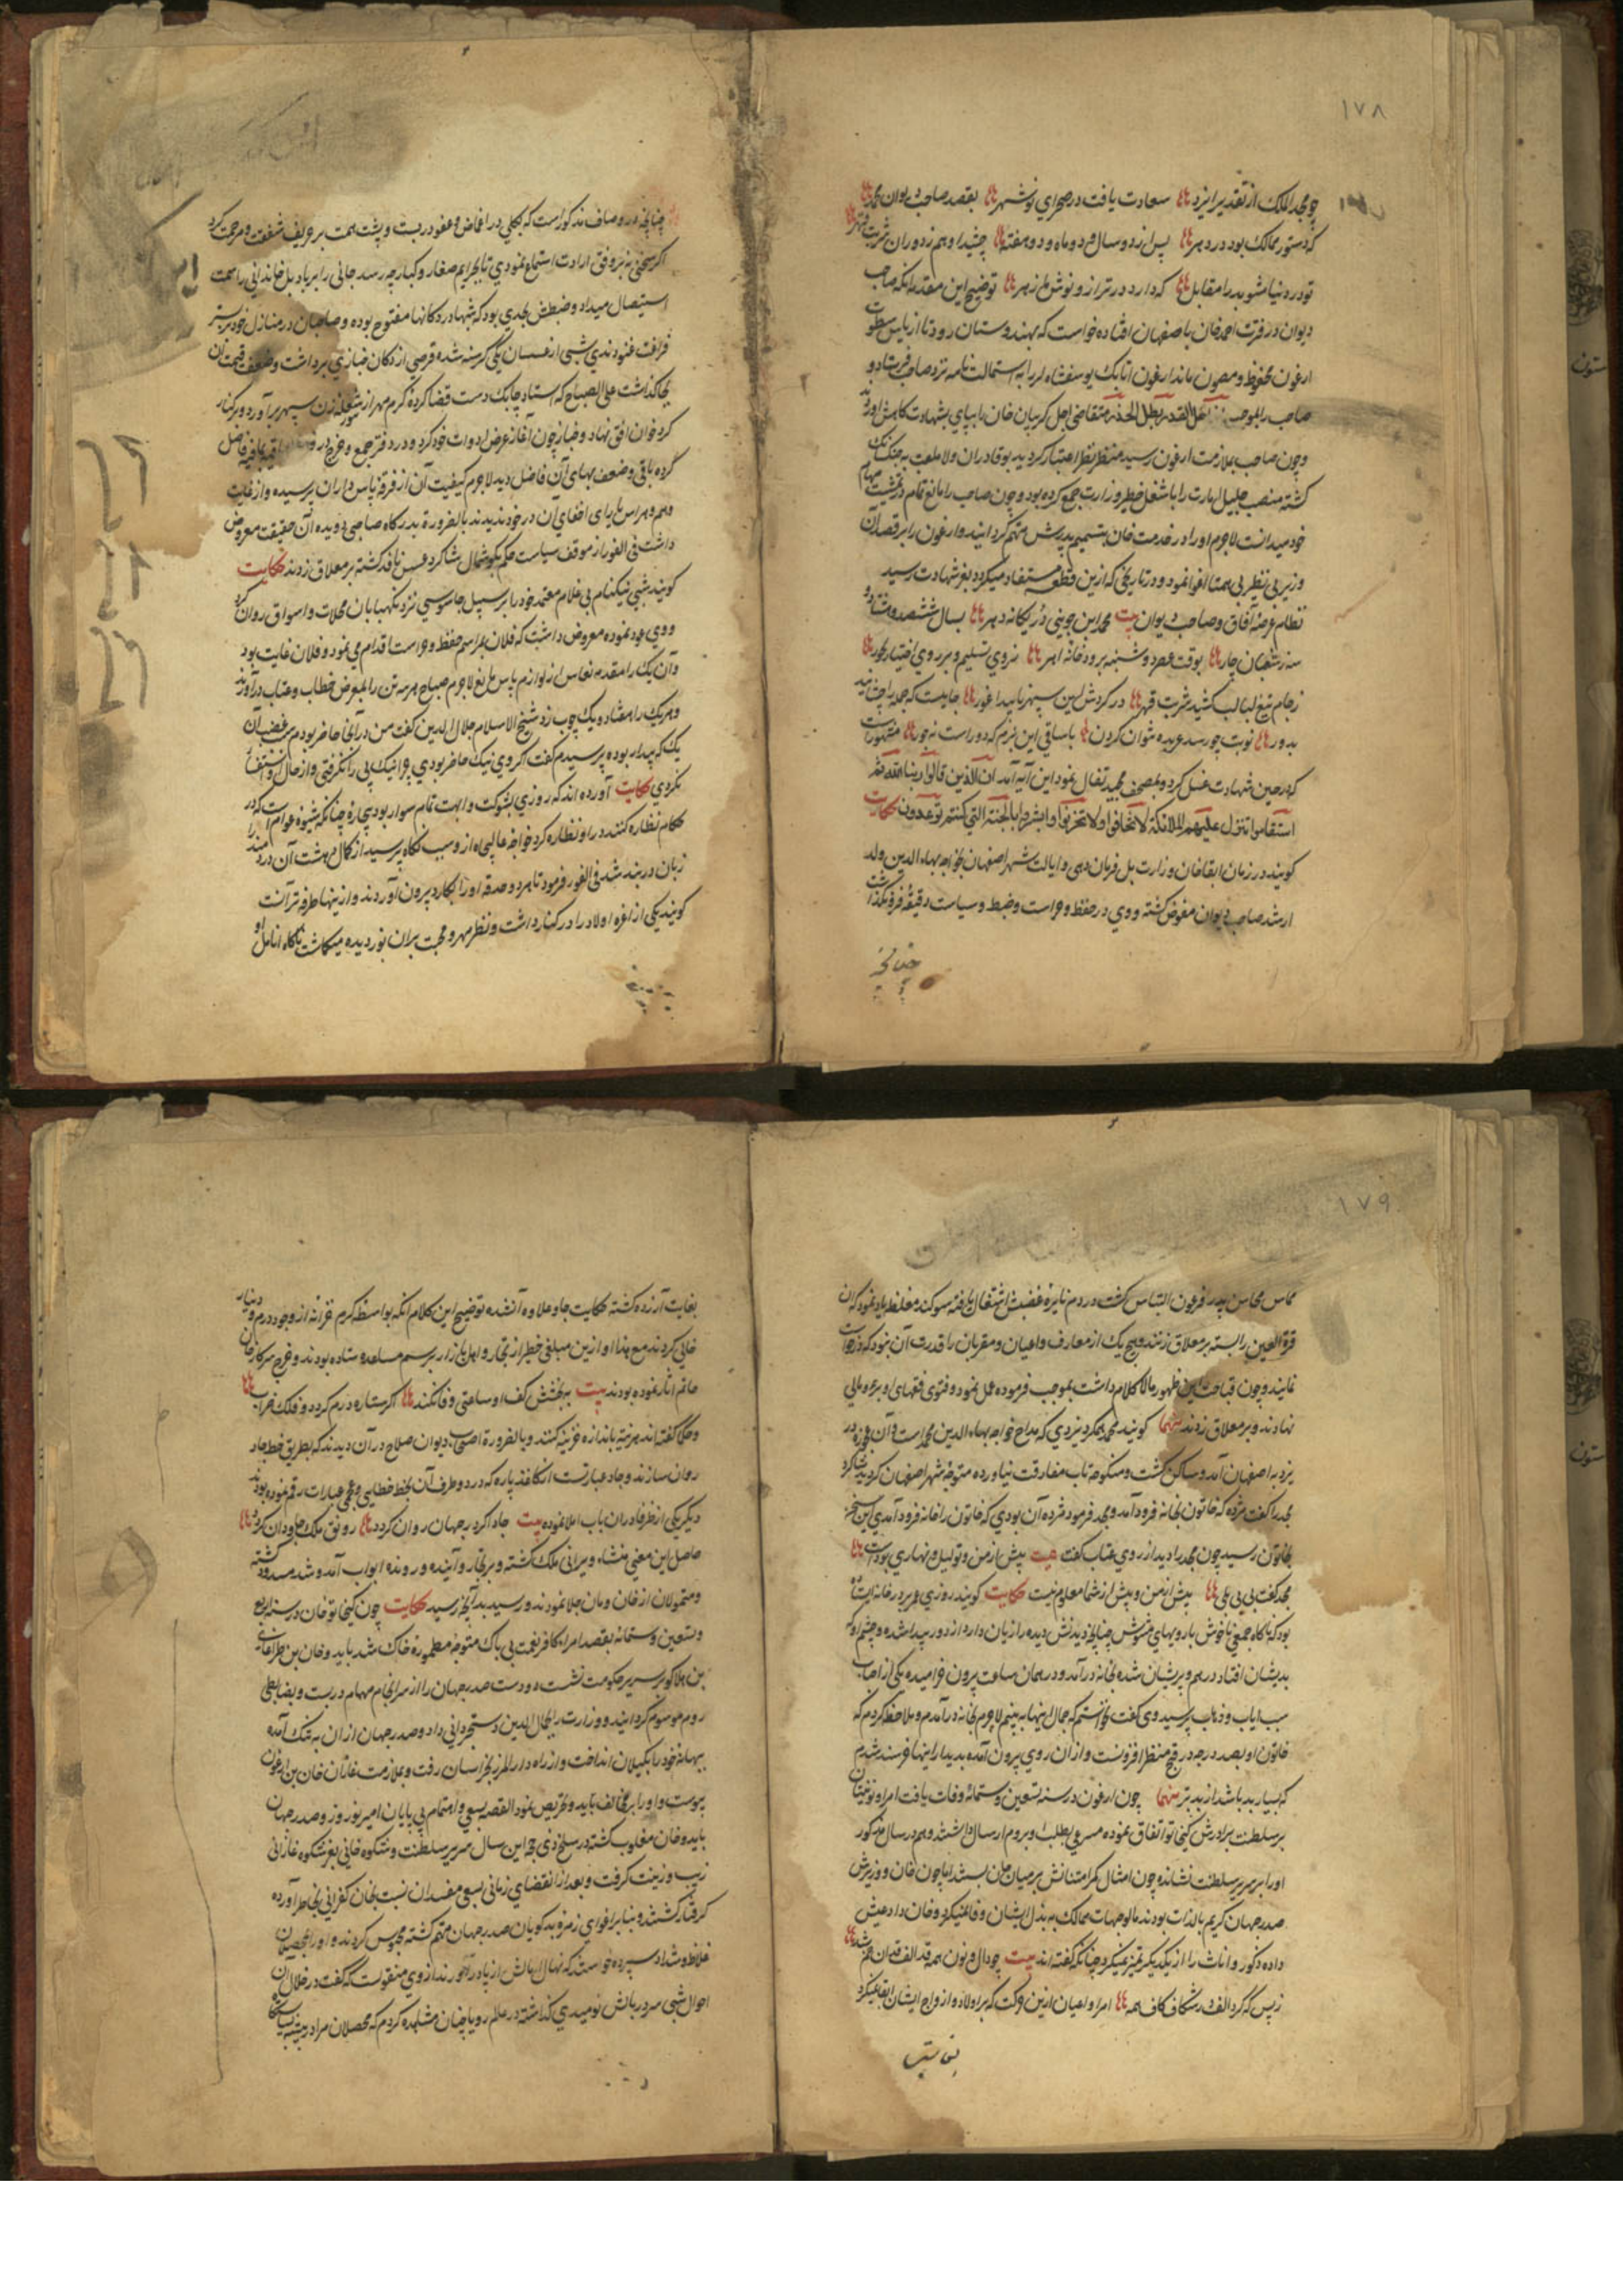 ۱۷۸
چو مجد الملک از تقدیر ایزد سعادت یافت در صحرای نوشهر بقصد صاحب دیوان محمد
که دستور ممالک بود در دهر پس از دو سال و دو ماه و دو هفته چشید او هم ز دوران شربت قهر
تو در دنیا مشو بد را مقابل که دارد در ترازو نوش و زهر توضیح این مقدمه آنکه صاحب
دیوان در فترت احمد خان باصفهان افتاده خواست که بهندوستان رود تا از باس سطوت
ارغون محفوظ و مصون ماند ارغون اتابک یوسفشاه لر را به استمالت نامه نزد صاحب فرستاد و
صاحب را بموجب متقاضی اجل گریبان خان بپای شهادت کاهش آورد
و چون صاحب بملازمت ارغون رسید منظور نظر اعتبار گردید بوقا
گشته منصب جلیل امارت را با شغل خطیر وزارت جمع کرده بود و چون صاحب را مانع تمام در تمشیت مهام
خود میدانست لاجرم او را در خدمت خان بتسمیم پدرش متهم گردانید و ارغون را بر قصد آن
وزیر بی نظیر بی همتا اغوا نمود و در تاریخی که ازین قطعه مستفاد میگردد بعز شهادت رسید
نظام عرصه آفاق و صاحب دیوان بیت محمد ابن جوینی در یگانه دهر بسال ششصد و هشتاد و
سه ز شعبان چار بوقت عصر دوشنبه برودخانه اهر ز روی تسلیم و بر روی اختیار نخورد
ز جام تیغ لبالب کشید شربت قهر در گردش این سپهر ناپیدا غور جامیست که جمله را چشانند
بدور نوبت چو رسد عربده نتوان کردن با ساقی این بزم که دور است نه جور مشهور است
که در حین شهادت غسل کرد و بمصحف مجید تفال نمود این آیه آمد ان الذین قالوا ربنا الله ثم
استقاموا تتنزل علیهم الملائکة الا تخافوا و لا تحزنوا و ابشروا بالجنة التی کنتم توعدون حکایت
گویند در زمان ابقا خان وزارت بل فرمان دهی و ایالت شهر اصفهان بخواجه بهاء الدین ولد
ارشد صاحب دیوان مفوض گشته و وی در حفظ و حراست و ضبط و سیاست دقیقه فرو نگذاشت
چنانچه
چنانچه در وصاف مذکور است که بکلی در اغماض و عفو در بست و پشت همت بر حریف شفقت و مرحمت کرد
اگر سخنی نه بر وفق ارادت استماع نمودی تا بجرایم صغار و کبار چه رسد جانی را بر باد بل خاندانی را سمت
استیصال میداد و ضبطش بحدی بود که شبها در دکانها مفتوح بوده و صاحبان در منازل خود بر بستر
فراغت غنودندی شبی از عسسان یکی گرسنه شده قرصی از دکان خبازی برداشت و ضعف قیمت نان
بجا گذاشت علی الصباح که استاد چابک دست قضا گرده گرم مهر از تنور سپهر برآورد و بر کنار
کرد خوان افق نهاد و خباز چون آغاز عرض ادوات خود کرد و در دفتر جمع و خرج
گرده باقی و ضعف بهای آن فاضل دید لاجرم کیفیت آن از فرقه پاس داران پرسیده و از غایت
وهم و هراس یارای اخفای آن در خود ندیدند بالضرورة بدرگاه صاحبی دویده آن حقیقت معروض
داشت فی الفور از موقف سیاست حکم بگوشمال شاگرد عسس نافذ گشته بر معلاق زدند حکایت
گویند شبی نیکنام بی غلام معتمد خود را بر سبیل جاسوسی نزد نگهبانان محلات و اسواق روان کرد
و وی عود نموده معروض داشت که فلان بمراسم حفظ و حراست اقدام می نمود و فلان غایت بود
و آن یک را مقدمه نعاس از لوازم پاس مانع لاجرم صباح هر سه تن را بمعرض خطاب و عتاب درآورند
و هر یک را هفتاد و یک چوب زد شیخ الاسلام جلال الدین گفت من در آنجا حاضر بودم سبب غضب آن
یک که بیدار بوده پرسیدم گفت اگر وی نیک حاضر بودی چرا نیک پی را نگرفتی و از حال او استفسار
نکردی حکایت آورده اند که روزی بشوکت و ابهت تمام سوار بود پیاره چنانکه شیوه عوام است که در
حکام نظاره کنند در او نظاره کرد خواجه عالیجاه از وی سبب نگاه پرسید از کمال دهشت آن دردمند را
زبان در بند شد فی الفور فرمود تا هر دو حدقه او را بکارد بیرون آوردند و ازینها طرفه تر آنست
گویند یکی از اعزه اولاد را در کنار داشت و نظر مهر و محبت بران نور دیده میگماشت ناگاه انامل او
۱۷۹
مماس محاسن پدر فرعون التباس گشت در دم نایره غضبش اشتعال یافته سوگند مغلظ یاد نمود که آن
قرة العین را بسته بر معلاق زنند و هیچ یک از معارف و اعیان و مقربان را قدرت آن نبود که درخواست
نمایند و چون قباحت این ظهور مالا کلام داشت بموجب فرموده عمل نمود و فتوی فقهای او بر عدم
نهادند و بر معلاق زدند گویند مجد همگر یزدی که مداح خواجه بهاء الدین محمد است و آن عجوزه در
یزد به اصفهان آمد و ساکن گشت و منکوحه تاب مفارقت نیاورده متوجه شهر اصفهان گردید شاگرد
مجد را گفت مژده که خاتون بخانه فرود آمد و مجد فرمود مژده آن بودی که خاتون را خانه فرود آمدی این سخن
بخاتون رسید چون مجد را دید از روی عتاب گفت بیت پیش از من و تو لیل و نهاری بوده است
مجد گفت بی بی بلی پیش از من و پیش از شما معلوم نیست حکایت گویند روزی بر در خانه ایستاده
بود که ناگاه جمعی ناخوش با رویهای مشوش چنانچه دیدنش دیده را زیان دارد از دور پیدا شده و چشم او که
بدیشان افتاد درهم و پریشان شده بخانه درآمد و در همان ساعت بیرون خرامیده یکی از اصحاب
سبب ایاب و ذهاب پرسید وی گفت خواستم که جمال اینها به بینم لاجرم بخانه درآمدم و ملاحظه کردم که
خاتون او بصد درجه در قبح منظر افزونست و از آن روی بیرون آمده بدیدار اینها خرسند شدم
که بسیار بد باشد از بد بتر چون ارغون در سنه تسعین و ستمائه وفات یافت امرا و نوئینان
بر سلطنت برادرش کیخاتو اتفاق نموده مسرعی بطلب او بروم ارسال داشتند و هم در سال مذکور
او را بر سریر سلطنت نشاندند چون امثال مراتبش بر میان جان بستند اما چون خان و وزیرش
صدر جهان کریم بالذات بودند مال و جهات ممالک به بذل ایشان وفا نمیکرد و خان داد عیش
داده ذکور و اناث را از یکدیگر تمیز نمیکرد چنانکه گفته اند بیت چو دال و نون همه قد الفقدان خم شد
ز بس که کرد الف در شکاف کاف همه امرا و اعیان ازین حرکت که بر اولاد و ازواج ایشان ابقا نمیکرد
بغایت
بغایت آزرده گشته حکایت چاو علاوه آن شده توضیح این کلام آنکه بواسطه کرم خزانه از وجود درم و دینار
خالی کردند مع هذا او ازین مبلغی خطیر از تجار و اهل بازار برسم مساعده ستاده بودند و خرج سرکار خان
حاتم آثار نموده بودند بیت به بخشش کف او ساعتی وفا نکند اگر ستاره درم گردد و فلک ضراب
و حکما گفته اند هزینه باندازه خزینه کنند و بالضرورة اصحاب دیوان صلاح در آن دیدند که بطریق خطا چاو
روان سازند و چاو عبارتست از کاغذ پاره که در دو طرف آن بخط خطایی و عجمی عبارات رقم نموده بودند
دیگر یکی از ظرفا در آن باب املا نموده بیت چاو اگر در جهان روان گردد رونق ملک جاودان گردد
حاصل این معنی منشاء ویرانی ملک گشته و بر تجار و آینده و رونده ابواب آمد و شد مسدود گشته
و متمولان از خان و مان جلا نمودند و رسید بد آنچه رسید حکایت چون کیخاتو خان در سنه اربع
و تسعین و ستمائه بقصد امراء کافر نعمت بی باک متوجه مطموره خاک شد بایدو خان بن طراغای
بن هلاکو بر سریر حکومت نشست و دست صدر جهان را از سرانجام مهام در بست و بضابطی
روم موسوم گردانید و وزارت را بجمال الدین دستجردانی داد و صدر جهان از آن به تنگ آمده
ببهانه خود را بگیلان انداخت و از راه دار المرز بخراسان رفت و بملازمت غازان خان بن ارغون
پیوست و او را بر مخالفت بایدو تحریص نمود القصه بسعی و اهتمام بی پایان امیر نوروز و صدر جهان
بایدو خان مغلوب گشته در سلخ ذی حجه این سال سریر سلطنت و شکوه خانی بعز شکوه غازانی
زیب و زینت گرفت و بعد از انقضای زمانی بسعی مفسدان نسبت بخان کفرانی بخاطر آورده
گرفتار گشتند و بنابر اغوای زمره بدگویان صدر جهان متهم گشته محبوس کردند و او را بمحصلان
غلاظ و شداد سپرده خواست که نهال بالش از پا درآورند از وی منقولست که گفت در خلال آن
احوال شبی سر در بالش نومیدی گذاشته در عالم رویا چنان مشاهده کردم که محصلان مرا در بیشه